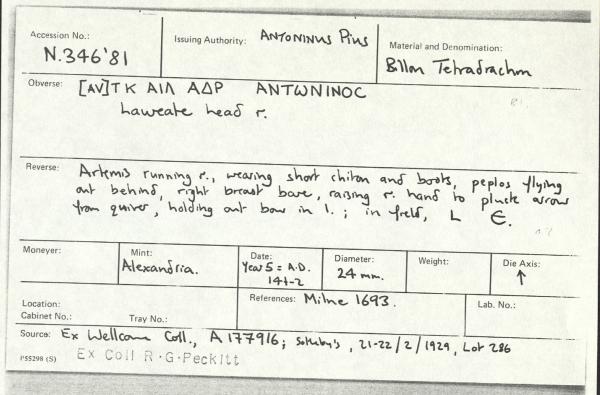 Accession No.: N.346'81
Issuing Authority: ANTONINUS PIUS
Material and Denomination: Billon Tetradrachm
Obverse: [AV]TK AIΛ AΔP ANTωNINOC
Laureate head r.
Reverse: Artemis running r., wearing short chiton and boots, peplos flying
out behind, right breast bare, raising r. hand to pluck arrow
from quiver, holding out bow in l.; in field, L Є.
Moneyer:
Mint: Alexandria.
Date: Year 5 = A.D. 141-2
Diameter: 24 mm.
Weight:
Die Axis: ↑
Location:
Cabinet No.: Tray No.:
References: Milne 1693.
Lab. No.:
Source: Ex Wellcome Coll., A177916; Sotheby's, 21-22/2/1929, Lot 286
PS5298 (S) Ex Coll R.G.Peckitt